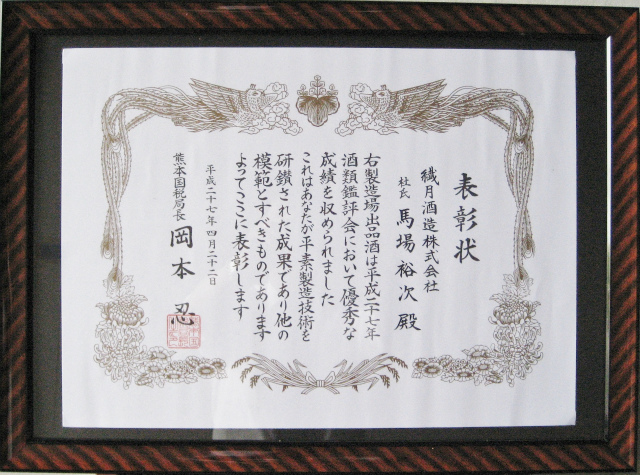 表彰状
繊月酒造株式会社
杜氏 馬場裕次殿
右製造場出品酒は平成二十七年
酒類鑑評会において優秀な
成績を収められました
これはあなたが平素製造技術を
研鑚された成果であり他の
模範とすべきものであります
よってここに表彰します
平成二十七年四月二十二日
熊本国税局長 岡本忍